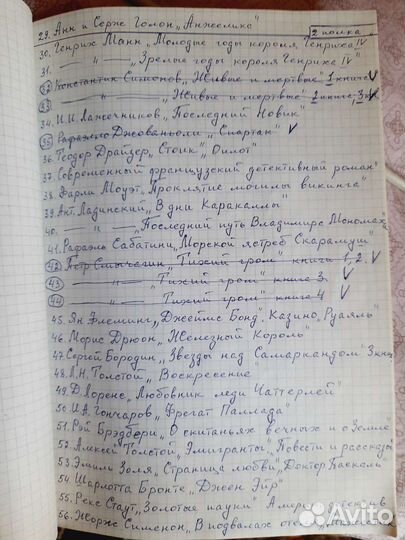 29. Анн и Серж Голон „Анжелика"
2 полка
30. Генрих Манн „Молодые годы короля Генриха IV
31. —— „ —— „Зрелые годы короля Генриха IV"
32 Константин Симонов „Живые и мертвые" 1 книга V
33 —— „ —— „Живые и мертвые" 2 книга, 3 V
34. И.И. Лажечников „Последний Новик"
35 Рафаэлло Джованьоли „Спартак" V
36. Теодор Драйзер „Стоик", „Оплот"
37. Современный французский детективный роман"
38. Фарли Моуэт „Проклятие могилы викинга
39. Ант. Ладинский „В дни Каракаллы"
40. —— „ —— „Последний путь Владимира Мономаха
41. Рафаэль Сабатини „Морской ястреб Скарамуш"
42 Пётр Смычагин „Тихий гром" книги 1, 2. V
43 —— „ —— „Тихий гром" книга 3 V
44 —— „ —— Тихий гром" книга 4 V
45. Ян Флеминг „Джеймс Бонд". Казино „Руаяль"
46. Морис Дрюон „Железный король"
47. Сергей Бородин „Звезды над Самаркандом" 3 книги
48. Л.Н. Толстой „Воскресение"
49. Д. Лоренс „Любовник леди Чаттерлей"
50. И.А. Гончаров „Фрегат Паллада"
51. Рэй Брэдбери „О скитаньях вечных и о Земле"
52. Алексей Толстой „Эмигранты" „Повести и рассказы
53. Эмиль Золя „Страница любви", „Доктор Паскаль
54. Шарлотта Бронте „Джен Эйр"
55. Рекс Стаут „Золотые пауки"
56. Жорж Сименон „В подвалах отеля
Avito